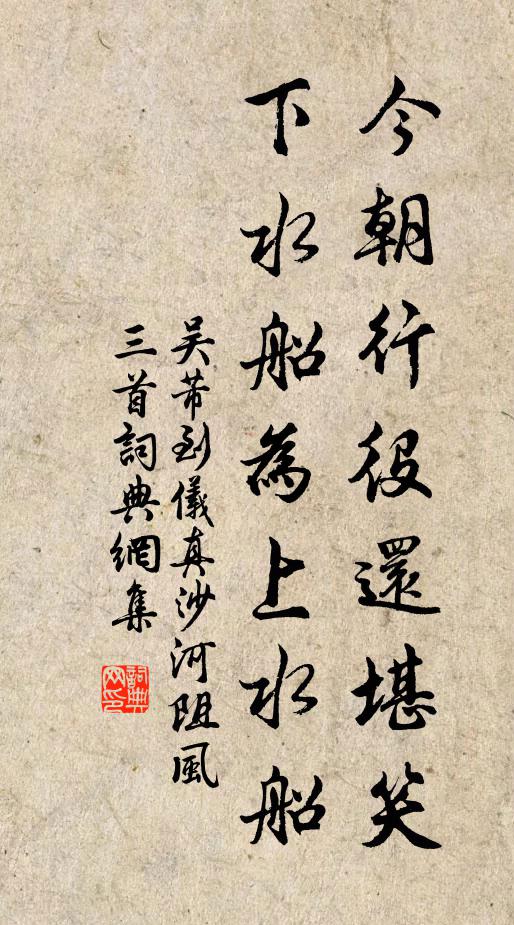 今朝行役還堪笑
下水船為上水船
吴芾到儀真沙河阻風
三首詞典網集
詞典網印